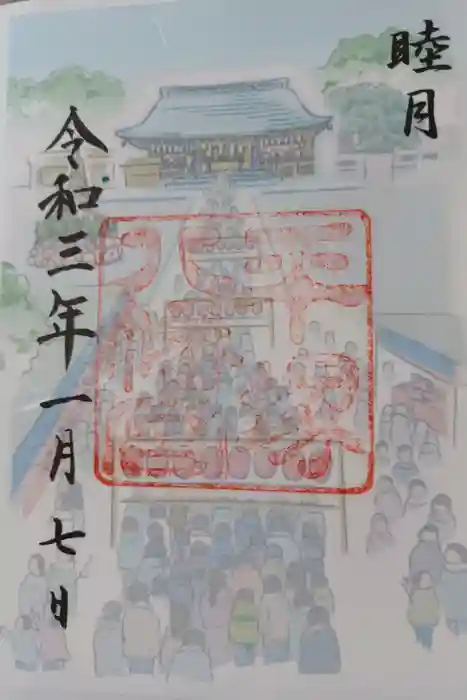 睦月
令和三年一月七日